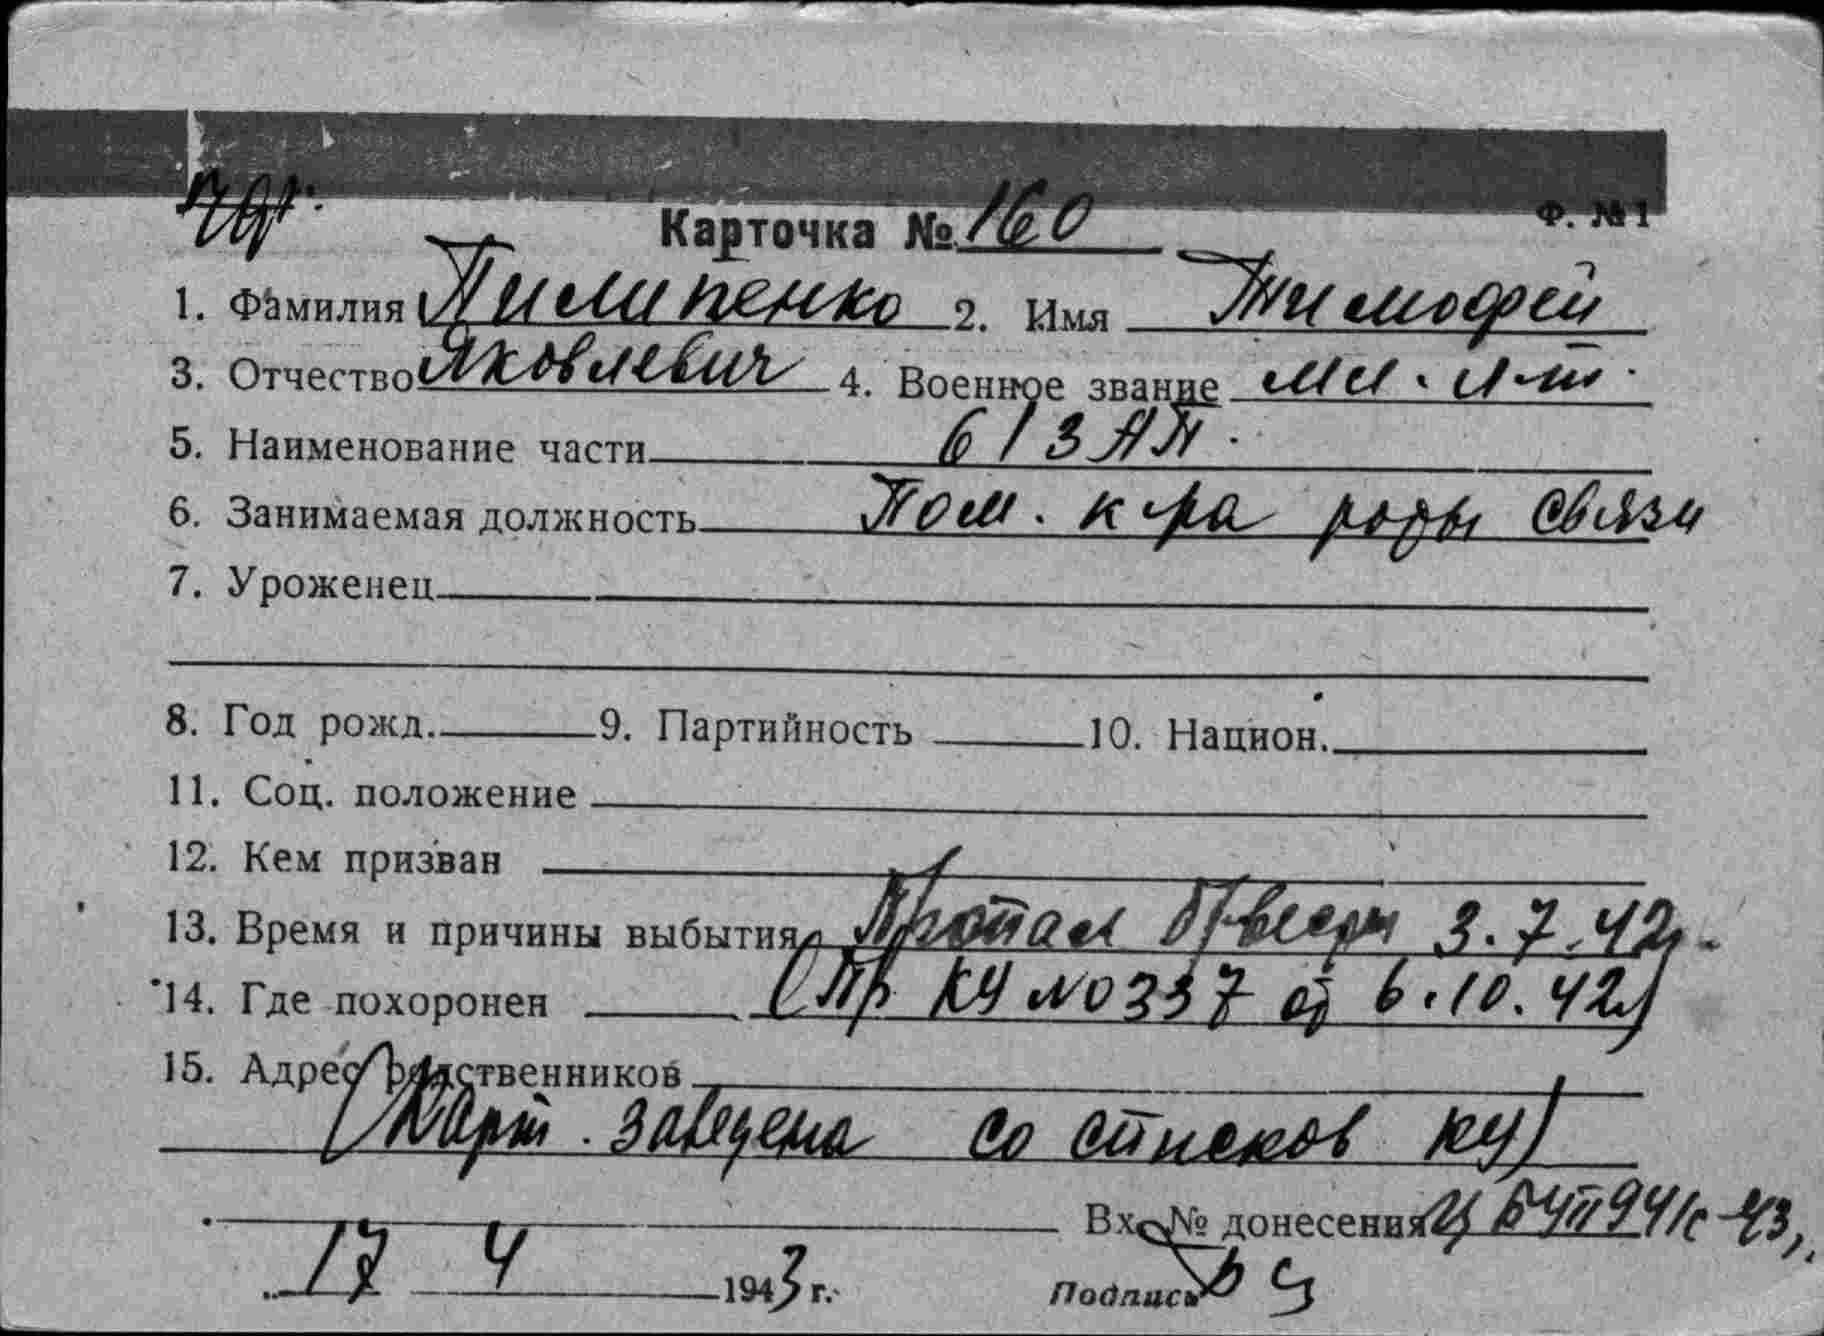 Карточка № 160 Ф. № 1
1. Фамилия Пилипенко 2. Имя Тимофей
3. Отчество Яковлевич 4. Военное звание мл. л-т.
5. Наименование части 613 АП.
6. Занимаемая должность Пом. к-ра роты связи
7. Уроженец
8. Год рожд. 9. Партийность 10. Национ.
11. Соц. положение
12. Кем призван
13. Время и причины выбытия Пропал б/вести 3.7.42г.
14. Где похоронен (Пр КУ №0337 от 6.10.42)
15. Адрес родственников
(Карт. заведена со списков КУ)
Вх. № донесения ЦБУП 941с-43г.
17 4 1943 г. Подпись